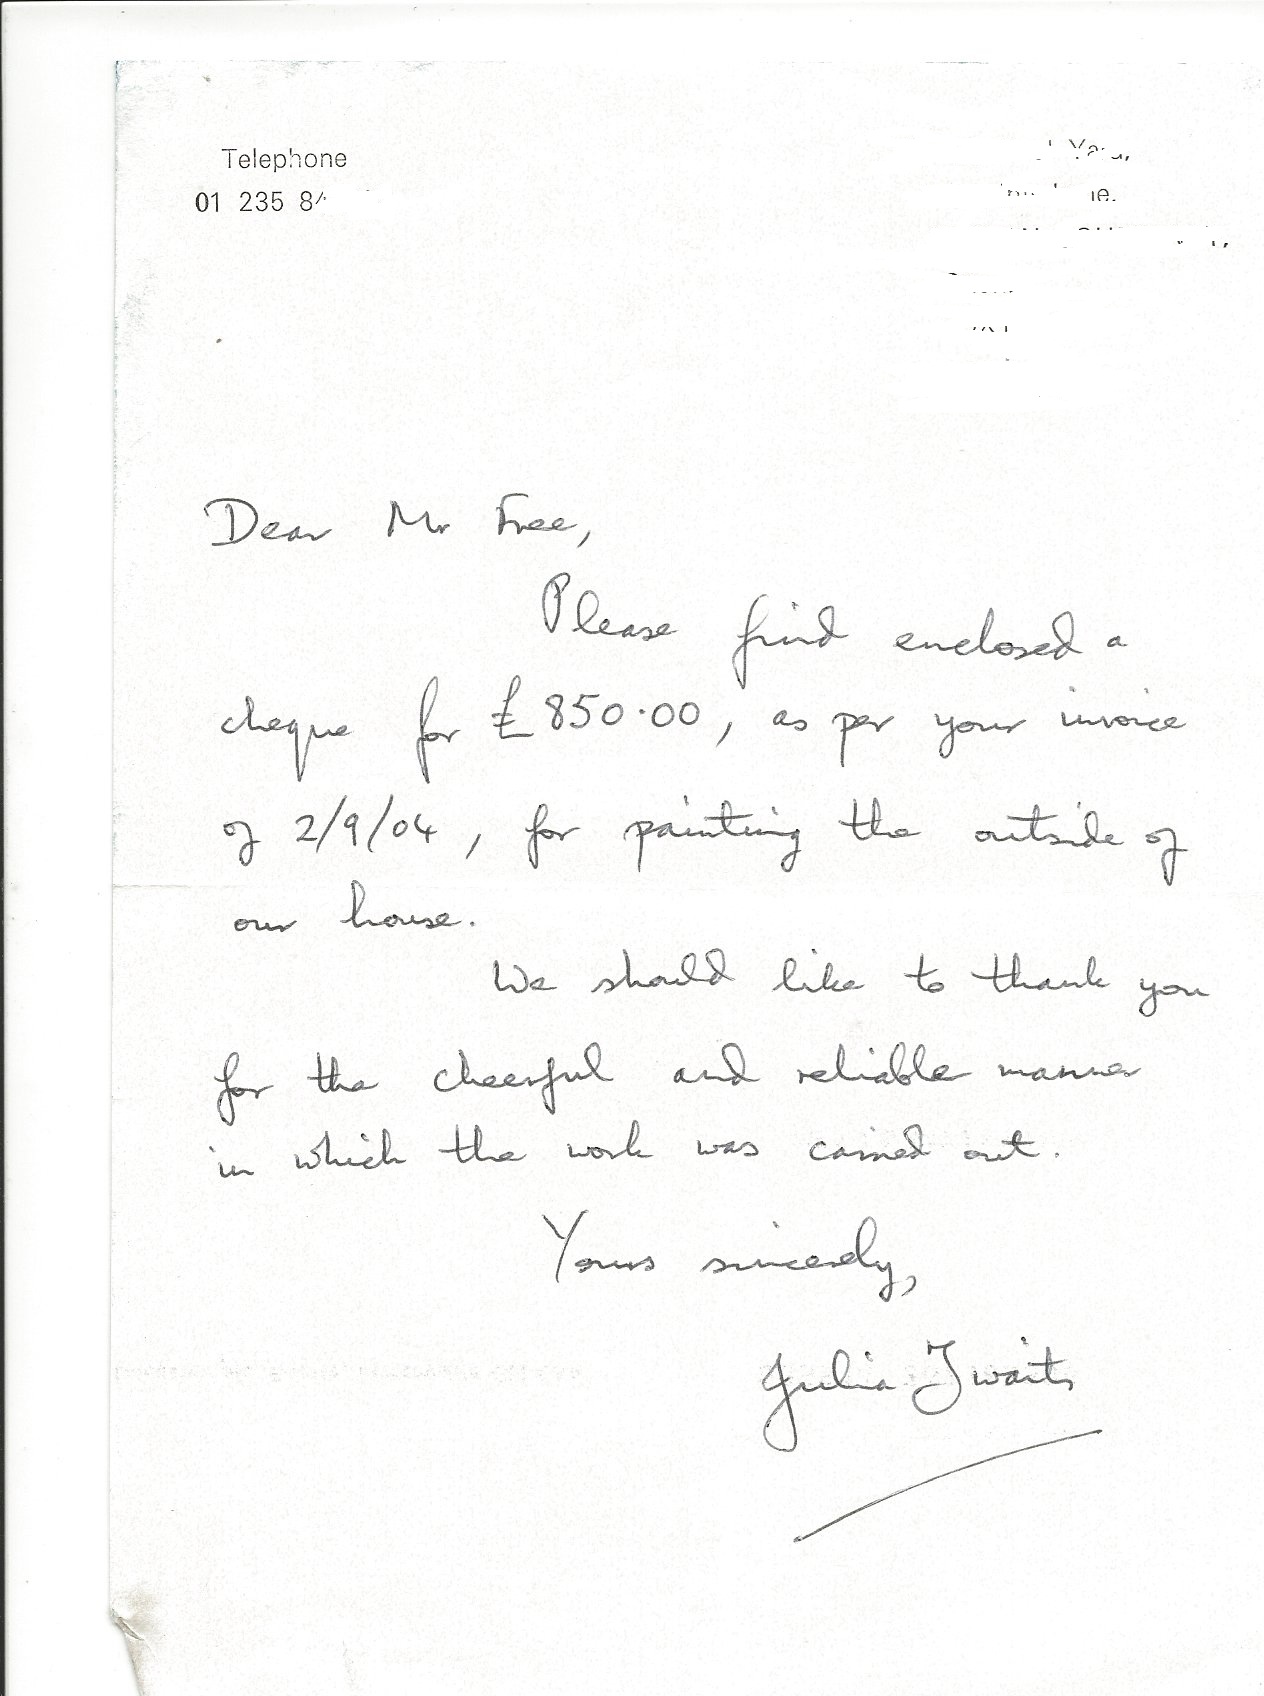 Telephone
01 235 8
Dear Mr Free,
Please find enclosed a
cheque for £850.00, as per your invoice
of 2/9/04, for painting the outside of
our house.
We should like to thank you
for the cheerful and reliable manner
in which the work was carried out.
Yours sincerely,
Julia Twaits